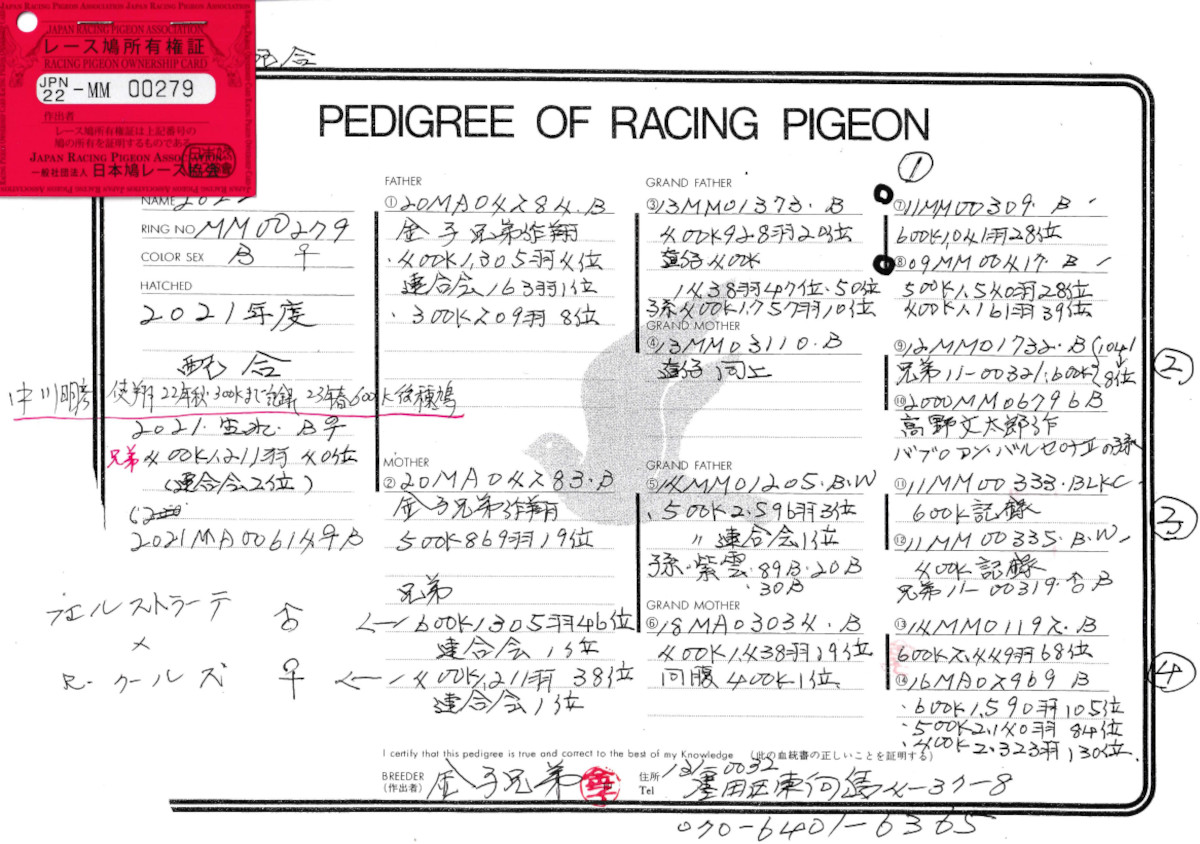 JAPAN RACING PIGEON ASSOCIATION
レース鳩所有権証
RACING PIGEON OWNERSHIP CARD
JPN 22 -MM 00279
作出者
レース鳩所有権証は上記番号の
鳩の所有を証明するものである
JAPAN RACING PIGEON ASSOCIATION
一般社団法人 日本鳩レース協会
配合
PEDIGREE OF RACING PIGEON
①
NAME
RING NO MM00279
COLOR SEX B ♀
HATCHED
2021年度
配合
中川明彦 使翔 22年秋・300Kまで記録 23年春600K後種鳩
2021.生れ.B♀
兄弟 400K1,211羽 40位
(連合会2位)
2021MA00614♀B
フェルストラーテ ♂
×
R.クールズ ♀
FATHER
①20MA04284.B
金子兄弟作翔
・400K1,305羽4位
連合会163羽1位
・300K209羽 8位
MOTHER
②20MA04283.B
金子兄弟作翔
500K869羽19位
兄弟
←600K1,305羽46位
連合会1位
←400K1,211羽 38位
連合会1位
GRAND FATHER
③13MM01373.B
400K928羽20位
直仔400K
1438羽47位・50位
孫400K1,757羽10位
GRAND MOTHER
④13MM03110.B
直仔 同上
GRAND FATHER
⑤14MM01205.B.W
.500K2.596羽3位
〃 連合会1位
孫・紫雲・89B・20B
・30B
GRAND MOTHER
⑥18MA03034.B
400K1,438羽19位
同腹 400K1位
⑦11MM00309.B
600K1,041羽28位
⑧09MM00417 B
500K1,540羽28位
400K1,161羽39位
②
⑨12MM01732.B(1041
兄弟11-00321;600K 8位
⑩2000MM06796B
高野丈太郎作
バブロアン・バルセロナⅡの孫
③
⑪11MM00333.BLKC
600K記録
⑫11MM00335.B.W
400K記録
兄弟11-00319.♂B
④
⑬14MM01192.B
600K2,449羽68位
⑭16MA02969 B
・600K1,590羽105位
・500K2.140羽 84位
・400K2.323羽130位
I certify that this pedigree is true and correct to the best of my Knowledge (此の血統書の正しいことを証明する)
BREEDER (作出者) 金子兄弟
住所 131-0032
Tel 墨田区東向島4-37-8
070-6401-6365